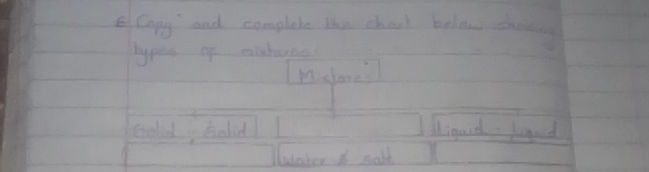 6 Copy and complete the chart below showing
types of mixtures.
Mixtures
Solid - Solid
Liquid - Liquid
Water & salt